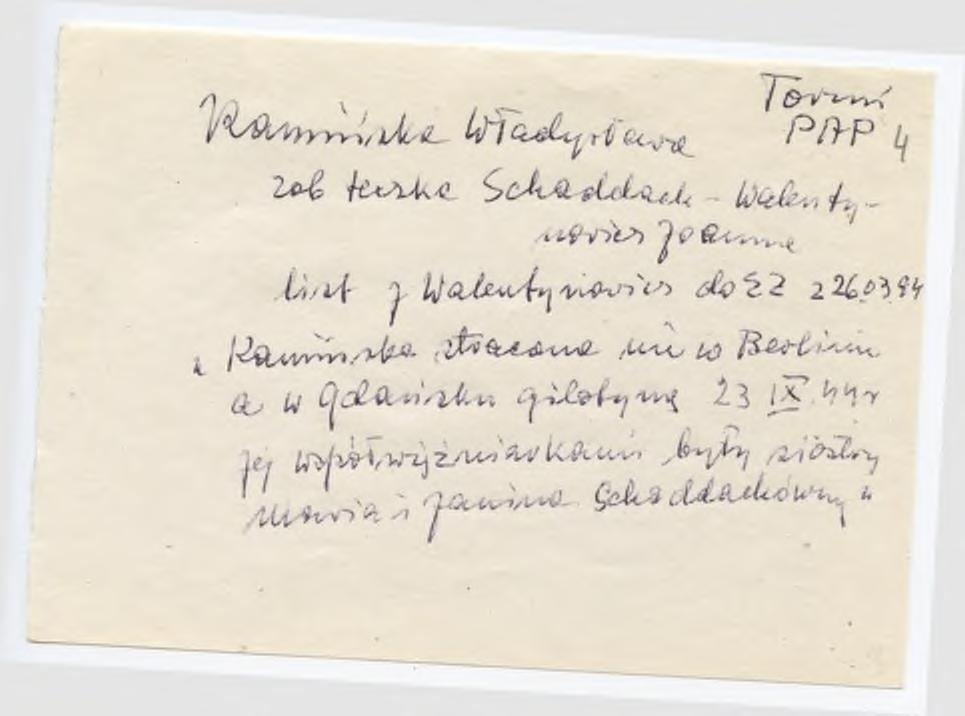 Toruń
PAP 4
Kamińska Władysława
zob teczka Schaddach - Walenty-
nowicz Joanna
list J Walentynowicz do EZ z 26.03.94
"Kamińska stracona nie w Berlinie
a w Gdańsku gilotyną 23 IX.44r
jej współwięźniarkami były siostry
Maria i Janina Schaddachówny"